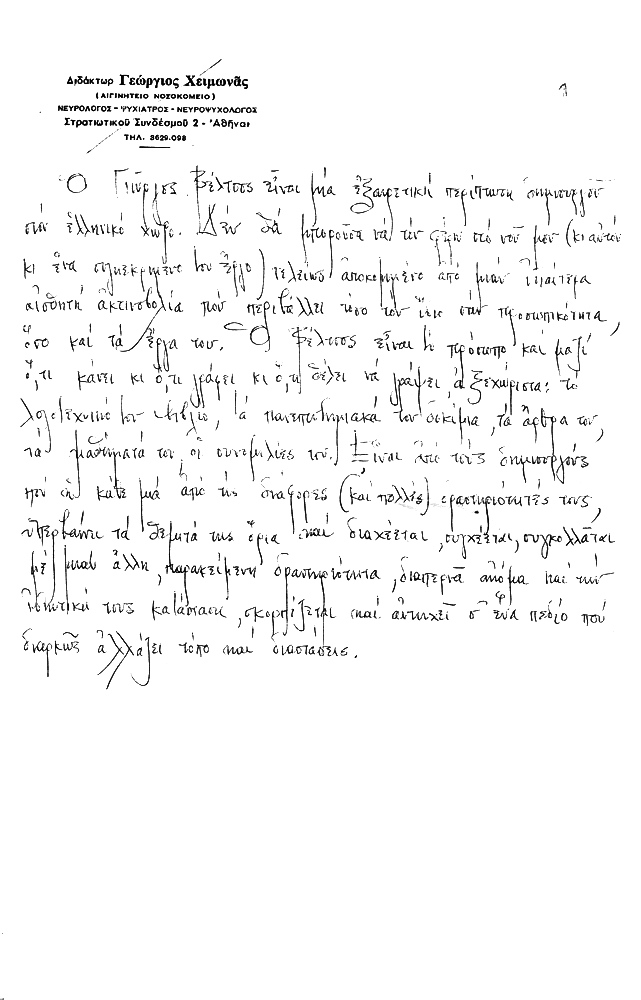 Διδάκτωρ Γεώργιος Χειμωνᾶς
(ΑΙΓΙΝΗΤΕΙΟ ΝΟΣΟΚΟΜΕΙΟ)
ΝΕΥΡΟΛΟΓΟΣ - ΨΥΧΙΑΤΡΟΣ - ΝΕΥΡΟΨΥΧΟΛΟΓΟΣ
Στρατιωτικοῦ Συνδέσμοῦ 2 - Ἀθῆναι
ΤΗΛ. 3629.098
Ὁ Γιῶργος Βέλτσος εἶναι μιά ἐξαιρετική περίπτωση δημιουργοῦ
στόν ἑλληνικό χῶρο. Δέν θά μποροῦσα νά τόν φέρω στό νοῦ μου (κι αὐτόν
κι ἕνα συγκεκριμένο του ἔργο) τελείως ἀποκομμένο ἀπό μιάν ἰδιαίτερα
αἰσθητή ἀκτινοβολία πού περιβάλλει τόσο τόν ἴδιο στήν προσωπικότητα,
ὅσο καί τά ἔργα του. Ὁ Βέλτσος εἶναι πρόσωπο καί μαζί
ὅ,τι κάνει κι ὅ,τι γράφει κι ὅ,τι θέλει νά γράψει ἀξεχώριστα: τό
λογοτεχνικό του βιβλίο, τά πανεπιστημιακά του δοκίμια, τά ἄρθρα του,
τά μαθήματά του, οἱ συνομιλίες του. Εἶναι ἀπό τούς δημιουργούς
πού κάθε μιά ἀπό τίς διάφορες (καί πολλές) δραστηριότητές τους,
ὑπερβαίνει τά θεμιτά της ὅρια καί διαχέεται, συγχέεται, συγκολλᾶται
μέ μιάν ἄλλη, παρακείμενη δραστηριότητα, διαπερνᾶ ἀκόμα καί τήν
ἰδιωτική τους κατάσταση, σκορπίζεται καί ἀντηχεῖ σ' ἕνα πεδίο πού
διαρκῶς ἀλλάζει τόπο καί διαστάσεις.